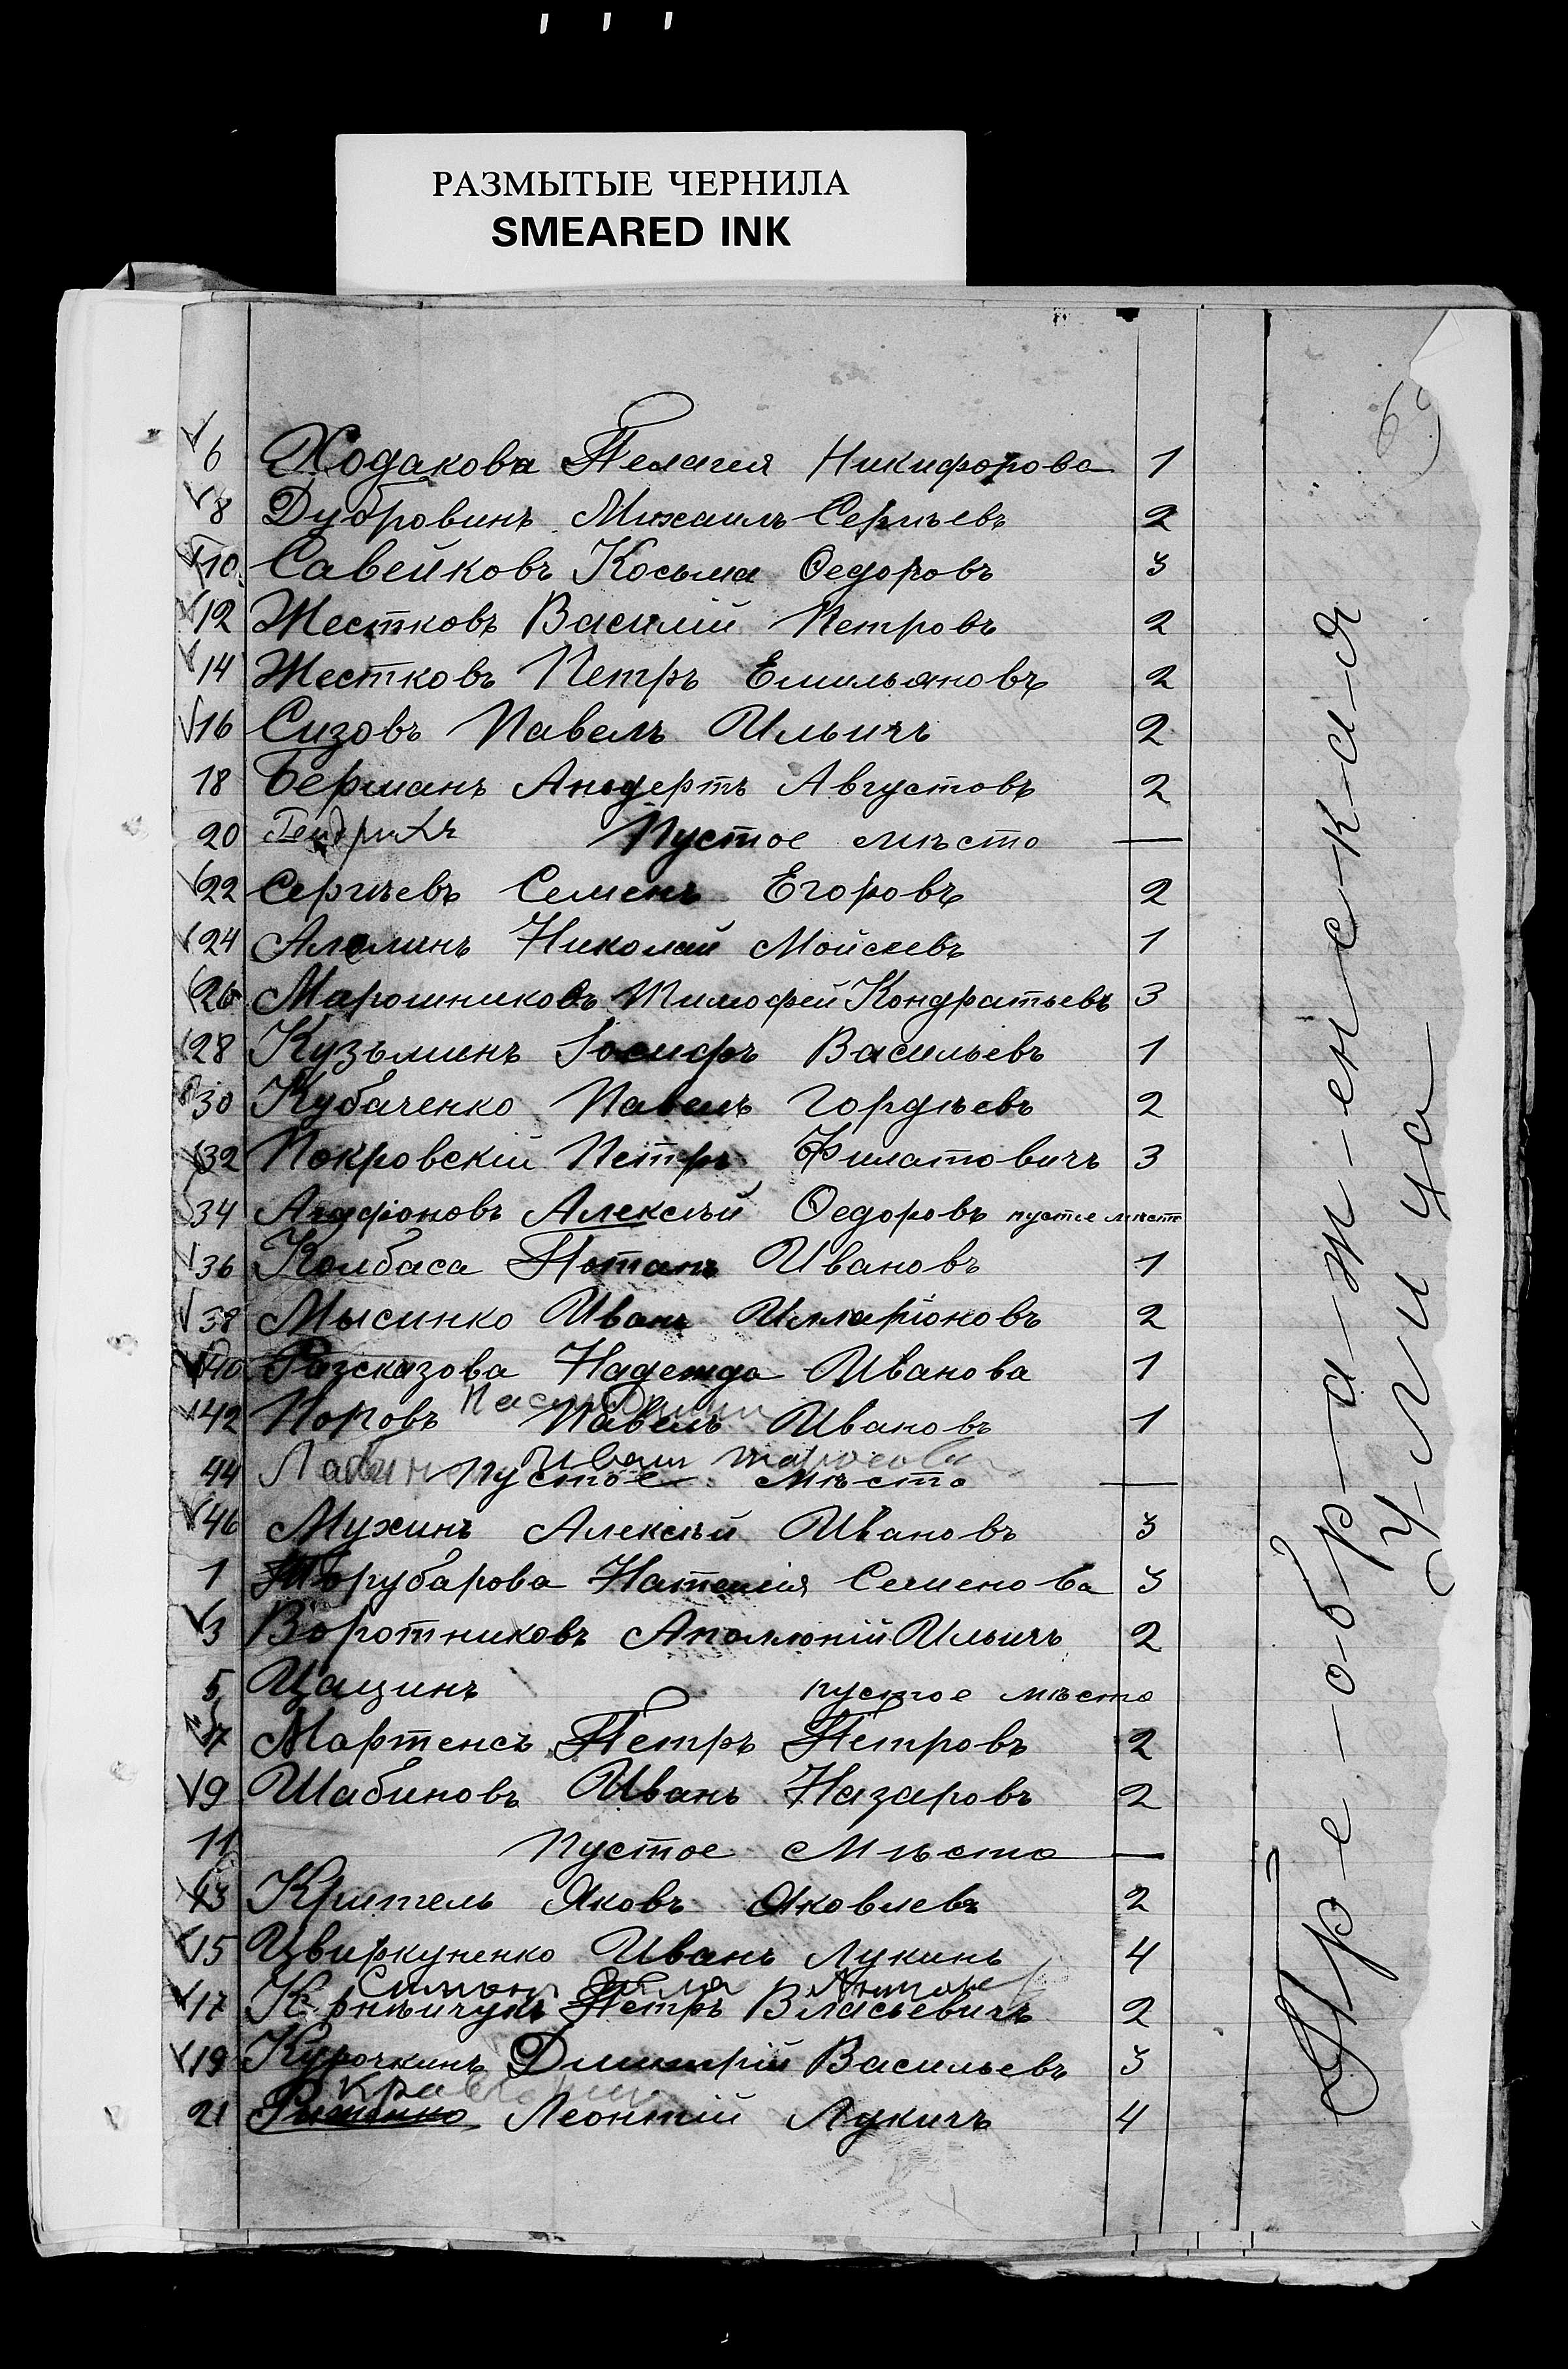 РАЗМЫТЫЕ ЧЕРНИЛА
SMEARED INK
6 Ходакова Пелагея Никифорова 1
8 Дубровинъ Михаилъ Сергѣевъ 2
10 Савейковъ Косьма Ѳедоровъ 3
12 Жестковъ Василій Петровъ 2
14 Жестковъ Петръ Емильяновъ 2
16 Сизовъ Павелъ Ильичъ 2
18 Берманъ Августовъ 2
20 Гендрихъ Пустое мѣсто —
22 Сергѣевъ Семенъ Егоровъ 2
24 Алелинъ Николай Мойсеевъ 1
26 Марошниковъ Тимофей Кондратьевъ 3
28 Кузьминъ Іосифъ Васильевъ 1
30 Кубаченко Павелъ Гордѣевъ 2
32 Покровскій Петръ Филатовичъ 3
34 Агафоновъ Алексѣй Ѳедоровъ пустое мѣсто
36 Колбаса Потапъ Ивановъ 1
38 Мысинко Иванъ Илларіоновъ 2
40 Разсказова Надежда Иванова 1
42 Поповъ Павелъ Ивановъ 1
44 Иван Пустое Мѣсто —
46 Мухинъ Алексѣй Ивановъ 3
1 Торубарова Наталія Семенова 3
3 Воротниковъ Аполлоній Ильичъ 2
5 Цацинъ пустое мѣсто
7 Мартенсъ Петръ Петровъ 2
9 Шабиновъ Иванъ Назаровъ 2
11 Пустое Мѣсто —
13 Кригель Яковъ Яковлевъ 2
15 Цвиркуненко Иванъ Лукинъ 4
17 Петръ Власьевичъ 2
19 Курочкинъ Дмитрій Васильевъ 3
21 Рыженко Леонтій Лукичъ 4
Пре-обр-а-ж-ен-с-к-а-я
улица